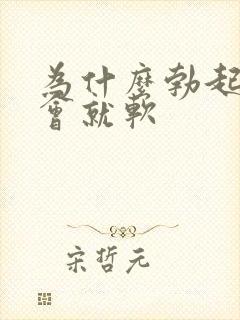 為什麼勃起
會就軟
宋哲元